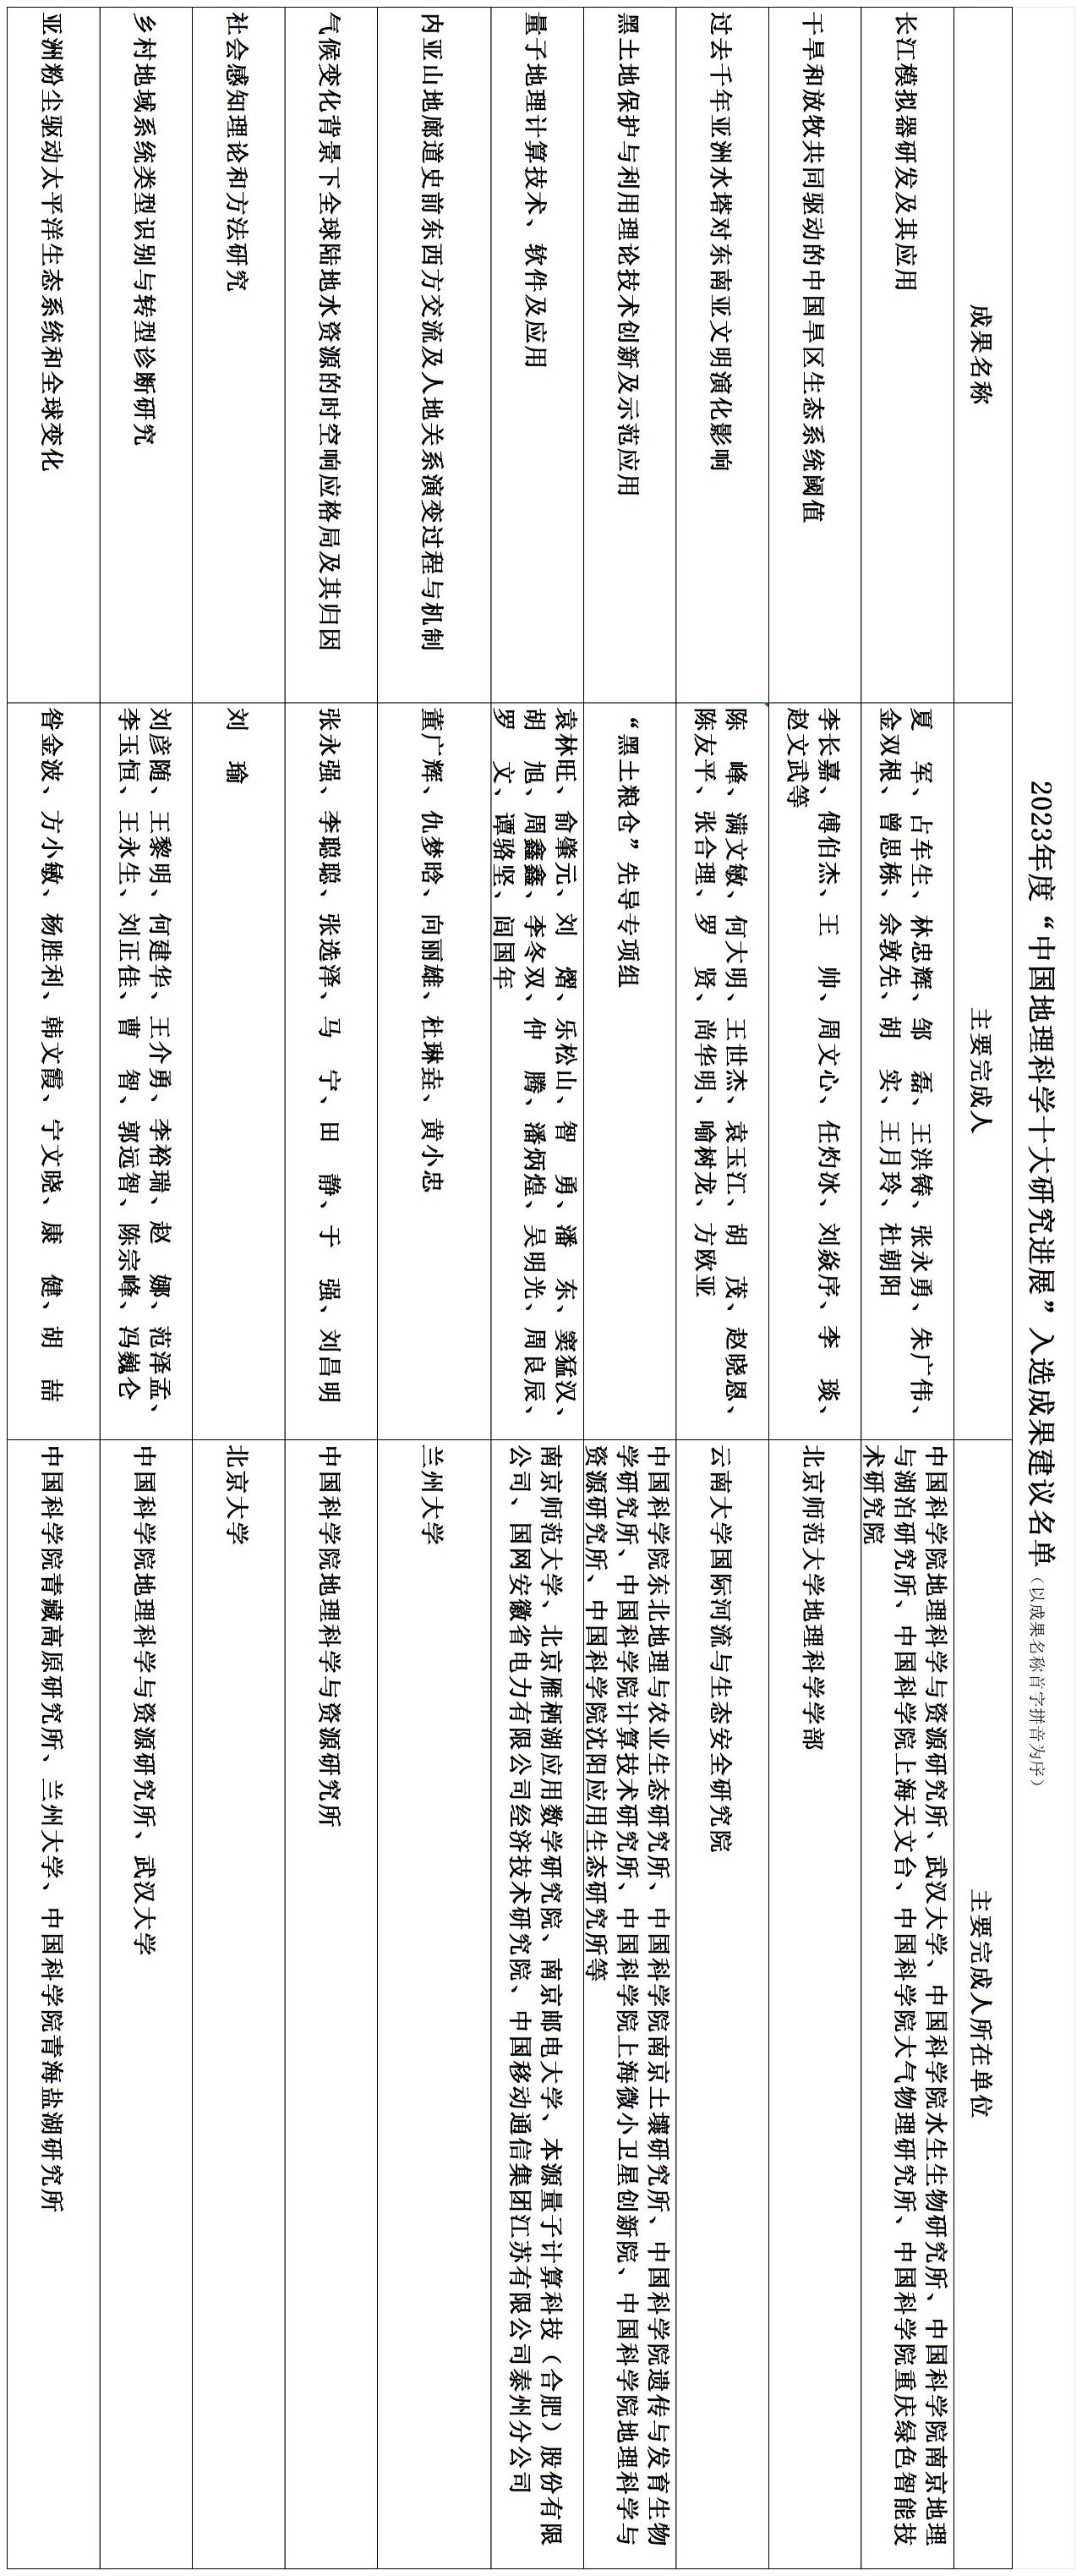 2023年度“中国地理科学十大研究进展”入选成果建议名单（以成果名称首字拼音为序）
成果名称
主要完成人
主要完成人所在单位
长江模拟器研发及其应用
夏　军、占车生、林忠辉、邹　磊、王洪铸、张永勇、朱广伟、
金双根、曾思栋、余敦先、胡　实、王月玲、杜朝阳
中国科学院地理科学与资源研究所、武汉大学、中国科学院水生生物研究所、中国科学院南京地理
与湖泊研究所、中国科学院上海天文台、中国科学院大气物理研究所、中国科学院重庆绿色智能技
术研究院
干旱和放牧共同驱动的中国旱区生态系统阈值
李长嘉、傅伯杰、王　帅、周文心、任灼冰、刘焱序、李　琰、
赵文武等
北京师范大学地理科学学部
过去千年亚洲水塔对东南亚文明演化影响
陈　峰、满文敏、何大明、王世杰、袁玉江、胡　茂、赵晓恩、
陈友平、张合理、罗　贤、尚华明、喻树龙、方欧亚
云南大学国际河流与生态安全研究院
黑土地保护与利用理论技术创新及示范应用
“黑土粮仓”先导专项组
中国科学院东北地理与农业生态研究所、中国科学院南京土壤研究所、中国科学院遗传与发育生物
学研究所、中国科学院计算技术研究所、中国科学院上海微小卫星创新院、中国科学院地理科学与
资源研究所、中国科学院沈阳应用生态研究所等
量子地理计算技术、软件及应用
袁林旺、俞肇元、刘　熠、乐松山、智　勇、潘　东、窦猛汉、
胡　旭、周鑫鑫、李冬双、仲　腾、潘炳煌、吴明光、周良辰、
罗　文、谭骆坚、闾国年
南京师范大学、北京雁栖湖应用数学研究院、南京邮电大学、本源量子计算科技（合肥）股份有限
公司、国网安徽省电力有限公司经济技术研究院、中国移动通信集团江苏有限公司泰州分公司
内亚山地廊道史前东西方交流及人地关系演变过程与机制
董广辉、仇梦晗、向丽雄、杜琳垚、黄小忠
兰州大学
气候变化背景下全球陆地水资源的时空响应格局及其归因
张永强、李聪聪、张选泽、马　宁、田　静、于　强、刘昌明
中国科学院地理科学与资源研究所
社会感知理论和方法研究
刘　瑜
北京大学
乡村地域系统类型识别与转型诊断研究
刘彦随、王黎明、何建华、王介勇、李裕瑞、赵　娜、范泽孟、
李玉恒、王永生、刘正佳、曹　智、郭远智、陈宗峰、冯巍仑
中国科学院地理科学与资源研究所、武汉大学
亚洲粉尘驱动太平洋生态系统和全球变化
昝金波、方小敏、杨胜利、韩文霞、宁文晓、康　健、胡　喆
中国科学院青藏高原研究所、兰州大学、中国科学院青海盐湖研究所